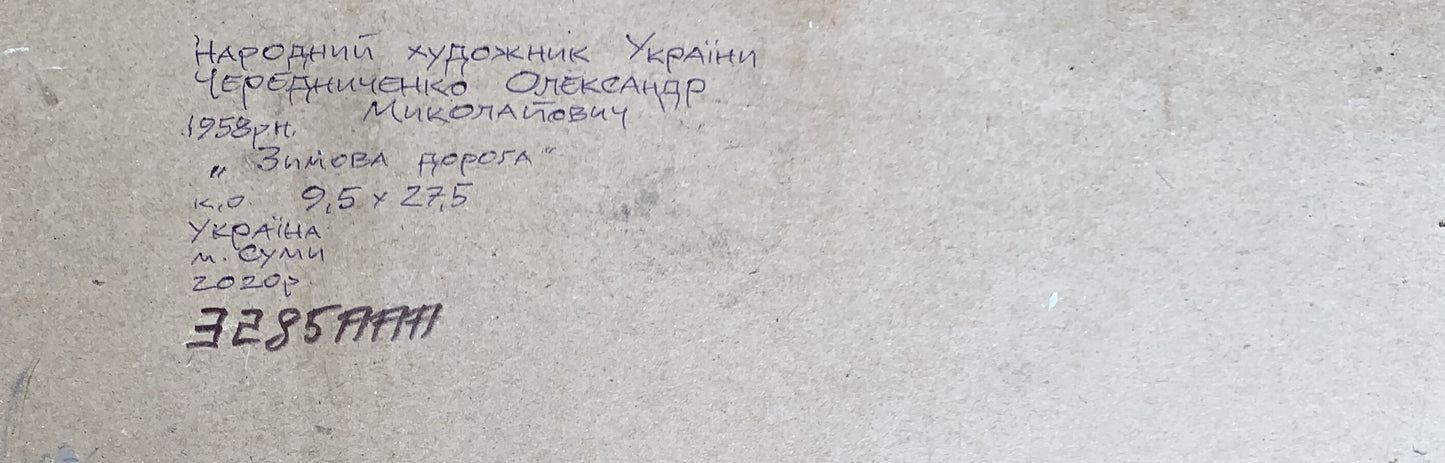 Народний художник України
Чередниченко Олександр
Миколайович
1958р.н.
„Зимова дорога"
к.о. 9,5 х 27,5
Україна
м. Суми
2020р.
3285ААА